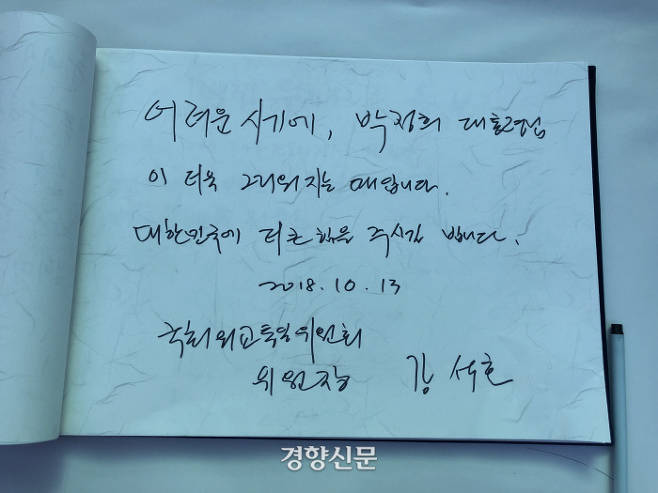 어려운 시기에, 박정희 대통령님
이 더욱 그리워지는 때입니다.
대한민국에 더 큰 힘을 주시길 빕니다.
2018. 10. 13
국회외교통일위원회
위원장 강석호
경향신문